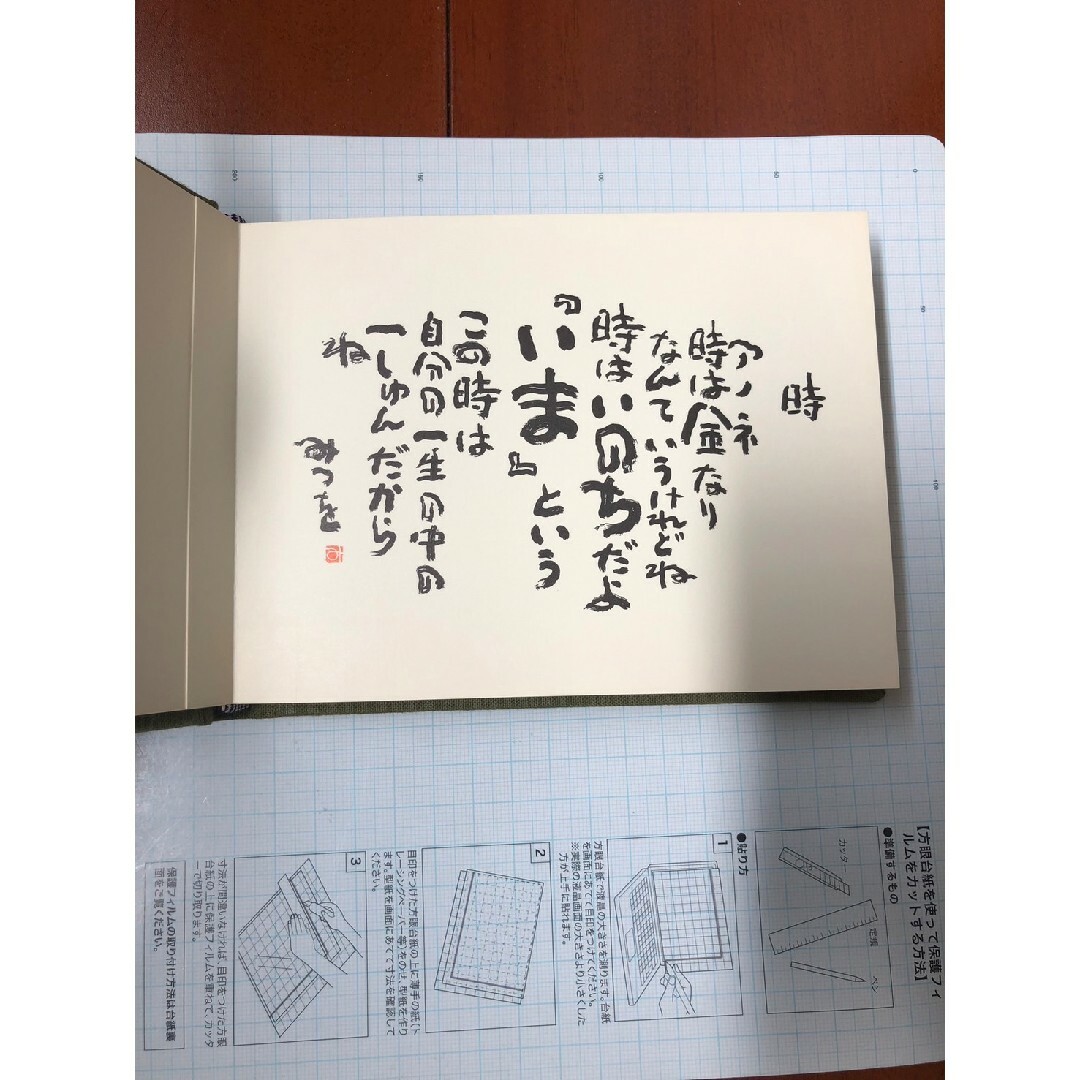 時
アノネ
時は金なり
なんていうけれどね
時はいのちだよ
『いま』という
この時は
自分の一生の中の
一しゅんだから
ね
みつを
【方眼台紙を使って保護フィ
ルムをカットする方法】
●準備するもの
カッター
定規
ペン
●貼り方
1
方眼台紙で液晶の大きさを測ります。台紙
を画面にあて、目印をつけてください。
※実際の液晶画面の大きさより小さくした
方が上手に貼れます。
2
目印をつけた方眼台紙の上に薄手の紙(ト
レーシングペーパー等)をのせ、型紙を作り
ます。型紙を画面にあてて寸法を確認して
ください。
3
寸法が間違いなければ、目印をつけた方眼
台紙の上に保護フィルムを重ねて、カッタ
ーで切り取ります。
保護フィルムの取り付け方法は台紙裏
面をご覧ください。
0
50
100
150
50
100